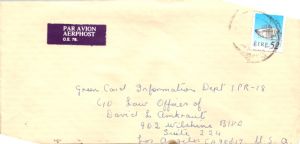 PAR AVION
AERPHOST
O.E. 76.
ÉIRE 52
Green Card Information Dept IPR-18
C/O Law Offices of
David L Amkraut
902 Wilshire Blvd
Suite 224
Los Angeles U.S.A